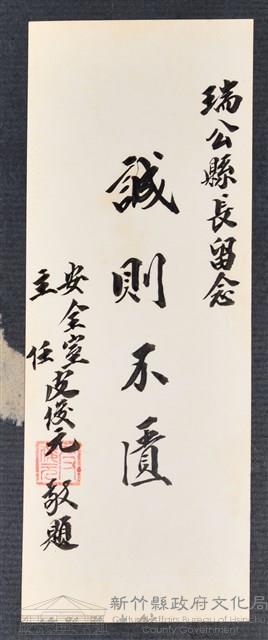 瑞公縣長留念
誠則不匱
安全室
主任
俊元 敬題
新竹縣政府文化局
Cultural Affairs Bureau of Hsinchu
County Government